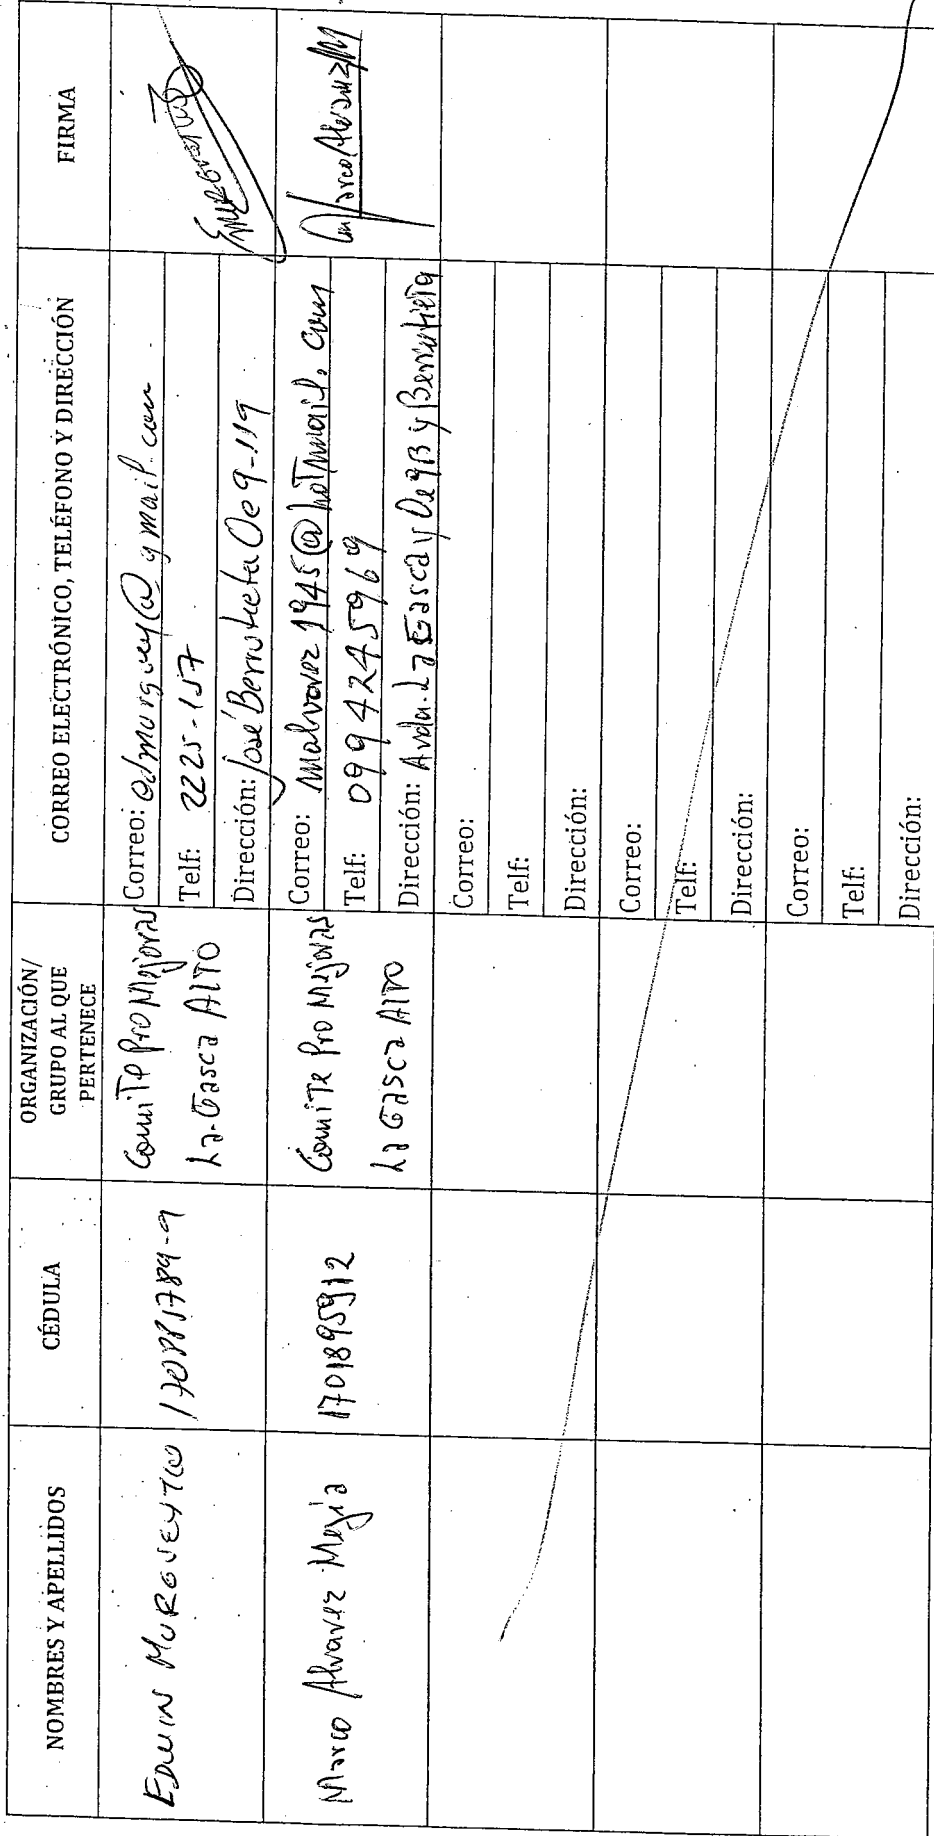 NOMBRES Y APELLIDOS
CÉDULA
ORGANIZACIÓN/
GRUPO AL QUE
PERTENECE
CORREO ELECTRÓNICO, TELÉFONO Y DIRECCIÓN
FIRMA
EDWIN MURGUEYTIO
Comité Pro Mejoras
La Gasca ALTO
Correo: edmurguey@gmail.com
Telf: 2225-157
Dirección: José Berrutieta Oe9-119
Marco Alvarez Mejía
1701895912
Comite Pro Mejoras
La Gasca AlTO
Correo: Malvarez1945@hotmail.com
Telf: 0994245969
Dirección: Avda. La Gasca y Oe9B y Berrutieta
Marco Alvarez M
Correo:
Telf:
Dirección:
Correo:
Telf:
Dirección:
Correo:
Telf:
Dirección: